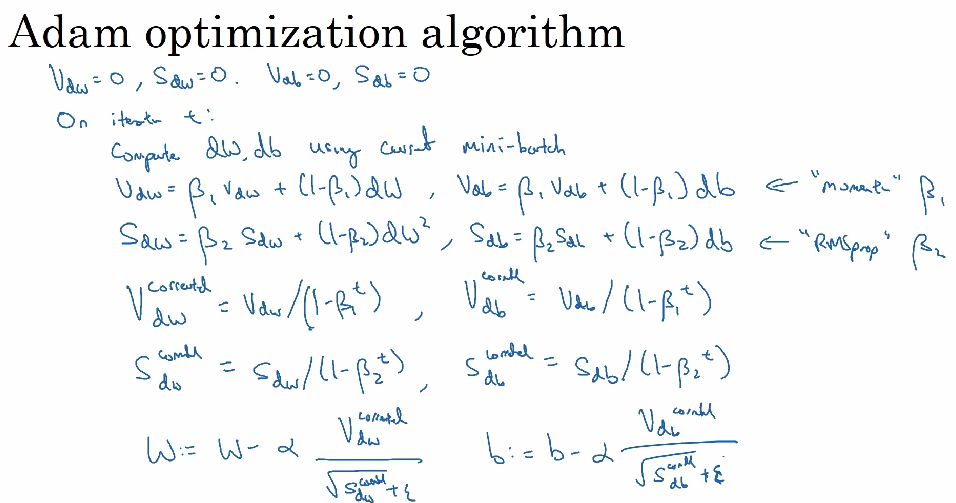 Adam optimization algorithm
V_dw = 0, S_dw = 0. V_db = 0, S_db = 0
On iteratn t:
Compute dW, db using current mini-batch
V_dw = β₁ V_dw + (1-β₁) dW , V_db = β₁ V_db + (1-β₁) db ← "moment" β₁
S_dw = β₂ S_dw + (1-β₂) dW² , S_db = β₂ S_db + (1-β₂) db ← "RMSprop" β₂
V_dw^corrected = V_dw / (1-β₁^t) , V_db^corrected = V_db / (1-β₁^t)
S_dw^corrected = S_dw / (1-β₂^t) , S_db^corrected = S_db / (1-β₂^t)
W := W - α V_dw^corrected / (√S_dw^corrected + ε) b := b - α V_db^corrected / (√S_db^corrected + ε)